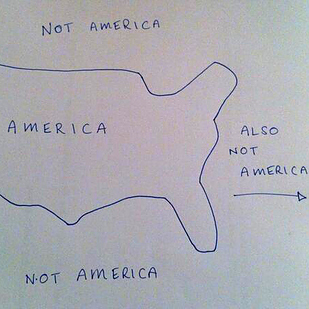 NOT AMERICA
AMERICA
ALSO
NOT
AMERICA
NOT AMERICA